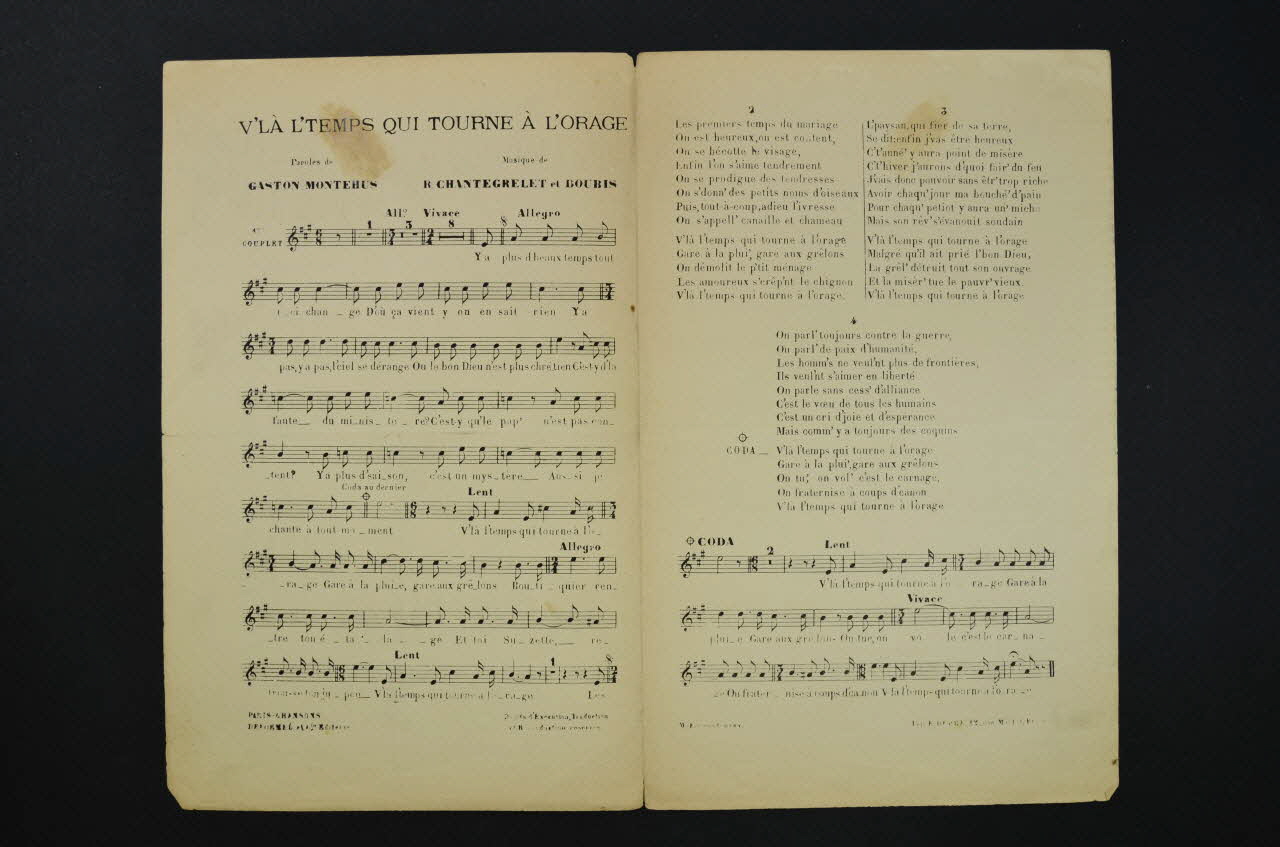 V'LÀ L'TEMPS QUI TOURNE À L'ORAGE
Paroles de
GASTON MONTEHUS
Musique de
R. CHANTEGRELET et DOUBIS
All? Vivace Allegro
1 3 8
COUPLET
Y a plus d'beaux temps tout
chan_ge D'où ça vient y on en sait rien Ya
pas, y a pas, l'ciel se dérange Ou le bon Dieu n'est plus chrétien C'est-y d'la
faute_ du mi_nis_tè_re? C'est-y qu'le pap' n'est pas con_
_tent? Ya plus d'sai_son, c'est un mys_tère_ Aus_si
Coda au dernier
Lent
chante à tout mo_ment V'là l'temps qui tourne à l'o_
Allegro
_ra_ge Gare à la plui_e, gare aux grê_lons Bou_ti_quier ren_
_tre ton é_ta_la_ge Et toi Su_zette,_ re_
Lent
1
V'là l'temps qui tourne à l'o_ra_ge Les
PARIS-CHANSONS
2
Les premiers temps du mariage
On est heureux, on est content,
On se bécotte le visage,
Enfin l'on s'aime tendrement
On se prodigue des tendresses
On s'donn' des petits noms d'oiseaux
Puis, tout-à-coup, adieu l'ivresse
On s'appell' canaille et chameau
V'là l'temps qui tourne à l'orage
Gare à la plui', gare aux grêlons
On démolit le p'tit ménage
Les amoureux s'crêp'nt le chignon
V'là l'temps qui tourne à l'orage.
3
L'paysan, qui fier de sa terre,
Se dit: enfin j'vas être heureux
C't'anné' y aura point de misère
C't'hiver j'aurons d'quoi fair' du feu
J'vais donc pouvoir sans êtr' trop riche
Avoir chaqu' jour ma bouché' d'pain
Pour chaqu' petiot y aura un' miche
Mais son rêv' s'évanouit soudain
V'là l'temps qui tourne à l'orage
Malgré qu'il ait prié l'bon Dieu,
La grêl' détruit tout son ouvrage
Et la misèr' tue le pauvr' vieux.
V'là l'temps qui tourne à l'orage
4
On parl' toujours contre la guerre,
On parl' de paix d'humanité,
Les homm's ne veul'nt plus de frontières,
Ils veul'nt s'aimer en liberté
On parle sans cess' d'alliance
C'est le vœu de tous les humains
C'est un cri d'joie et d'espérance
Mais comm' y a toujours des coquins
CODA _ V'là l'temps qui tourne à l'orage
Gare à la plui', gare aux grêlons
On tu', on vol' c'est le carnage,
On fraternise à coups d'canon
V'là l'temps qui tourne à l'orage
CODA
2
Lent
V'là l'temps qui tourne à l'o_ra_ge Gare à la
Vivace
plui_e Gare aux grê_lons On tue, on vo_le c'est le car_na_
_ge On frater_nise à coups d'canon V'là l'temps qui tourne à l'o_ra_ge